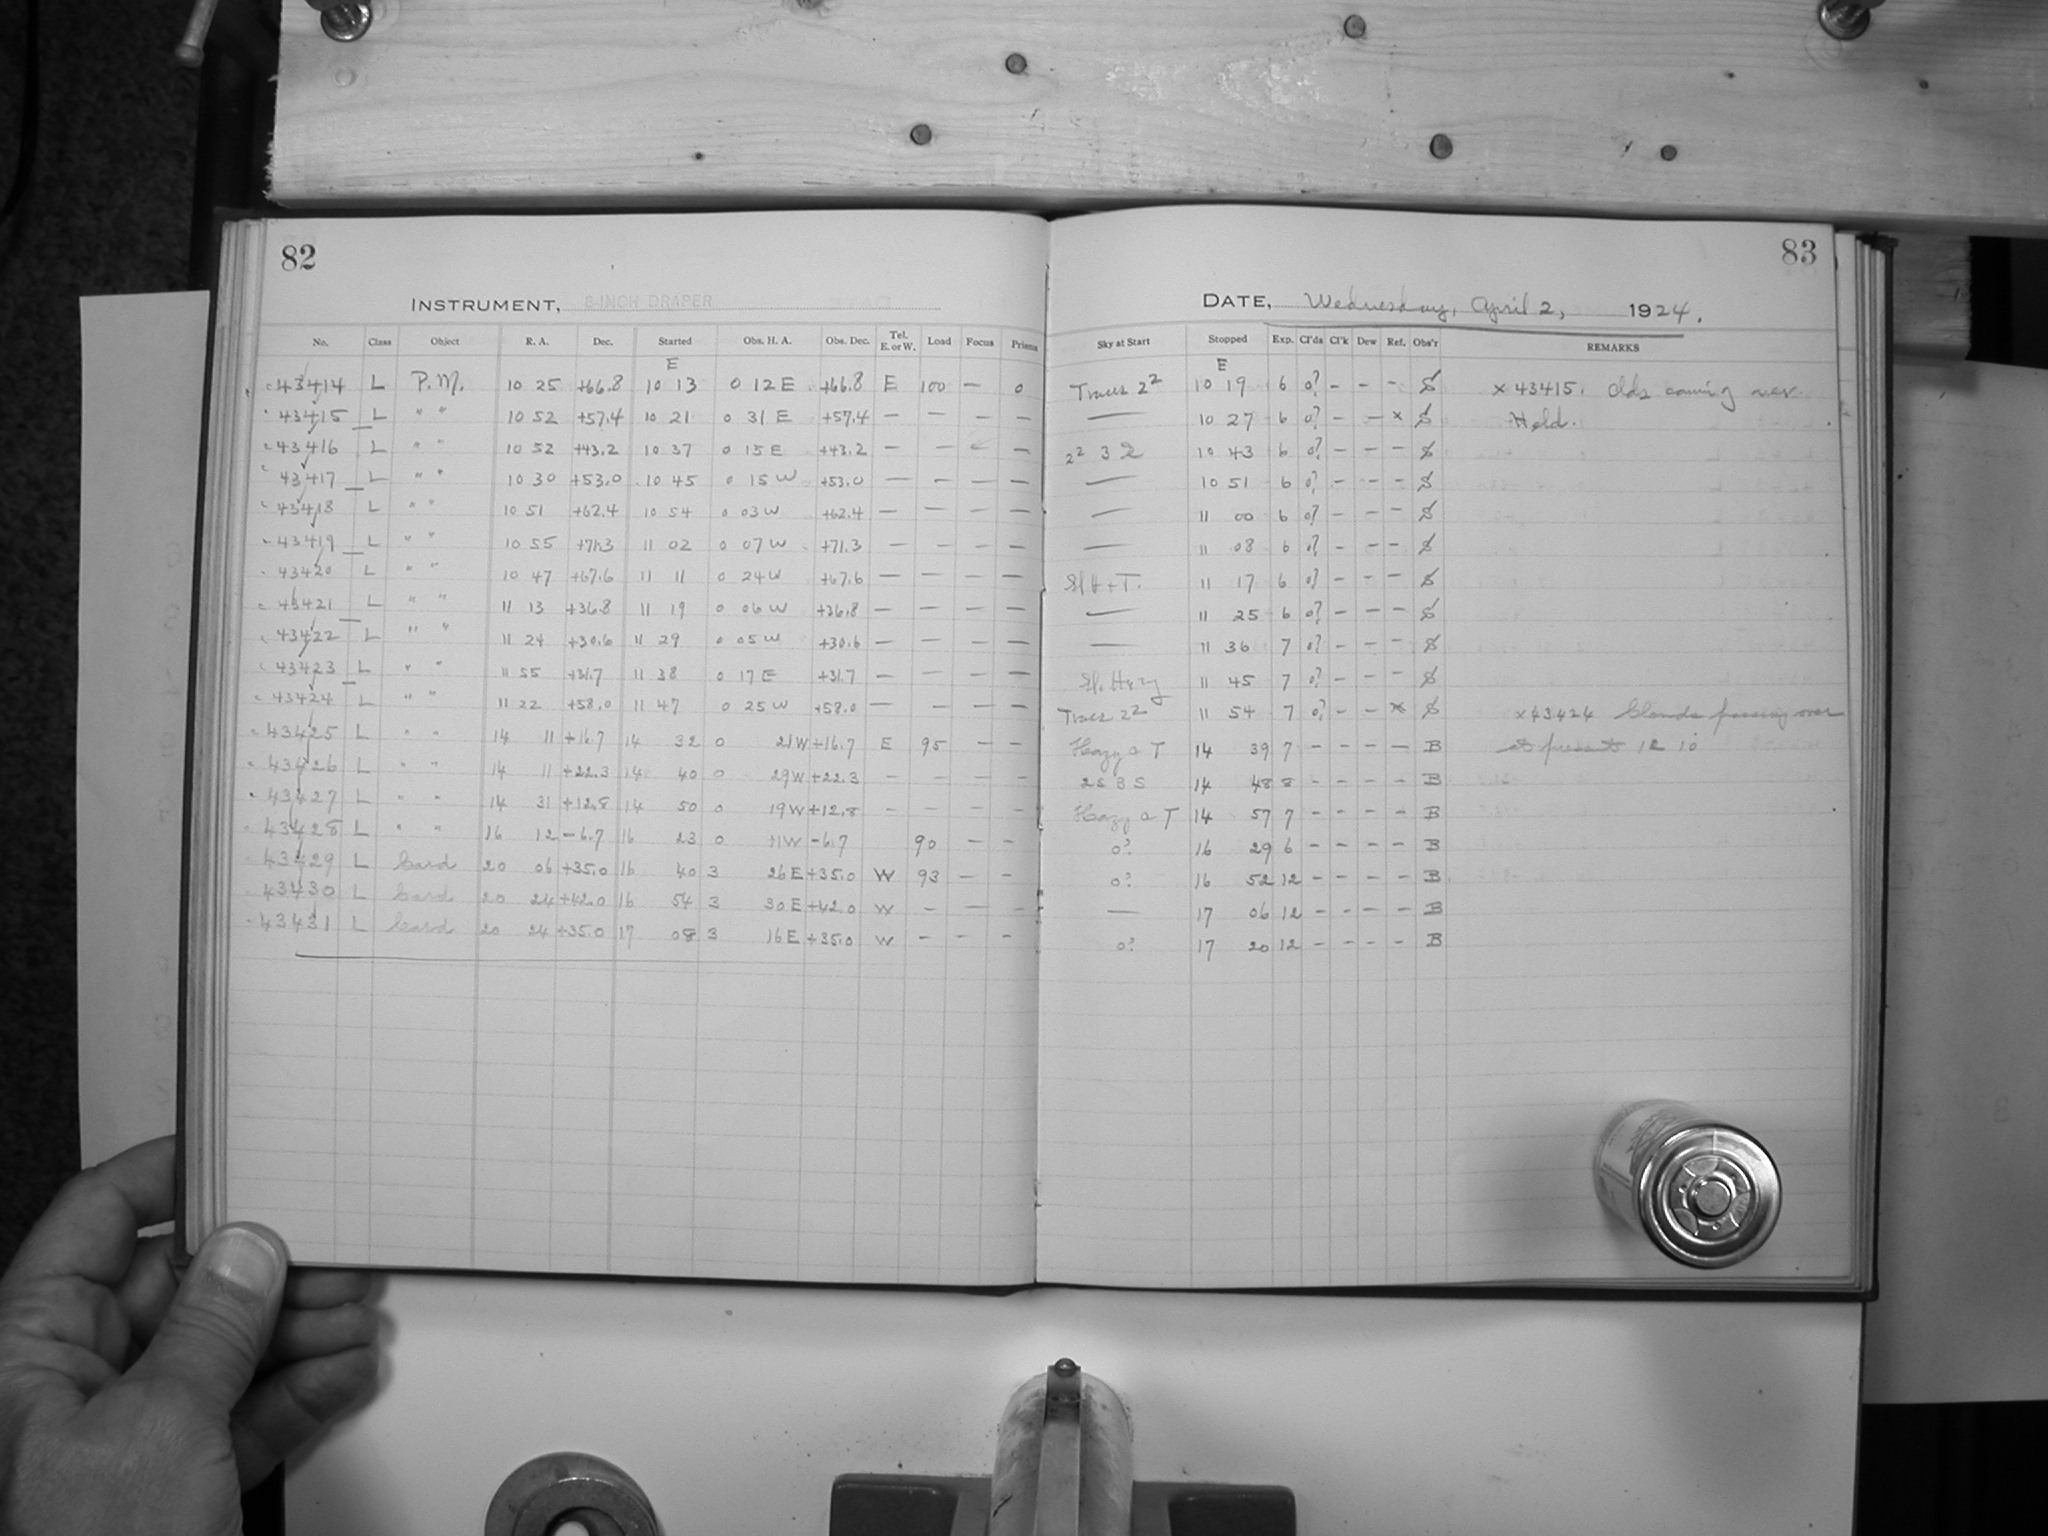 82
83
INSTRUMENT, 8-INCH DRAPER
DATE, Wednesday, April 2, 1924.
No. Class Object R. A. Dec. Started Obs. H. A. Obs. Dec. Tel. E. or W. Load Focus Prisms Sky at Start Stopped Exp. Cl'ds Cl'k Dew Ref. Obs'r REMARKS
E E
43414 L P.M. 10 25 +66.8 10 13 0 12 E +66.8 E 100 — 0 Traces 2² 10 19 6 0? — — — S x 43415. Clds coming over.
43415 L " " 10 52 +57.4 10 21 0 31 E +57.4 — — — — — 10 27 6 0? — — x S Held.
43416 L " " 10 52 +43.2 10 37 0 15 E +43.2 — — — 2² 3 2 10 43 6 0? — — — S
43417 L " " 10 30 +53.0 10 45 0 15 W +53.0 — — — — — 10 51 6 0? — — — S
43418 L " " 10 51 +62.4 10 54 0 03 W +62.4 — — — — — 11 00 6 0? — — — S
43419 L " " 10 55 +71.3 11 02 0 07 W +71.3 — — — — — 11 08 6 0? — — — S
43420 L " " 10 47 +67.6 11 11 0 24 W +67.6 — — — — Sl H + T. 11 17 6 0? — — — S
43421 L " " 11 13 +36.8 11 19 0 06 W +36.8 — — — — — 11 25 6 0? — — — S
43422 L " " 11 24 +30.6 11 29 0 05 W +30.6 — — — — — 11 36 7 0? — — — S
43423 L " " 11 55 +31.7 11 38 0 17 E +31.7 — — — — Sl. Hazy 11 45 7 0? — — — S
43424 L " " 11 22 +58.0 11 47 0 25 W +58.0 — — — — Traces 2² 11 54 7 0? — — x S x 43424 Clouds passing over
43425 L " " 14 11 +16.7 14 32 0 21 W +16.7 E 95 — — Hazy a T 14 39 7 — — — — B at present 12 10
43426 L " " 14 11 +22.3 14 40 0 29 W +22.3 — — — — 2S 3 S 14 48 8 — — — — B
43427 L " " 14 31 +12.8 14 50 0 19 W +12.8 — — — — Hazy a T 14 57 7 — — — — B
43428 L " " 16 12 -6.7 16 23 0 11 W -6.7 90 — — 0? 16 29 6 — — — — B
43429 L Card 20 06 +35.0 16 40 3 26 E +35.0 W 93 — — 0? 16 52 12 — — — — B
43430 L Card 20 24 +42.0 16 54 3 30 E +42.0 W — — — — 17 06 12 — — — — B
43431 L Card 20 24 +35.0 17 08 3 16 E +35.0 W — — — 0? 17 20 12 — — — — B